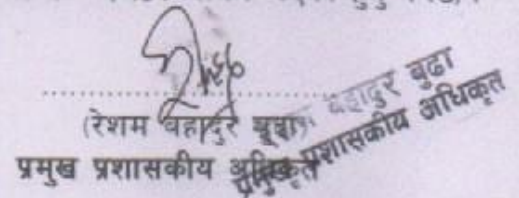 (रेशम बहादुर बुढा)
प्रमुख प्रशासकीय अधिकृत
बहादुर बुढा
प्रमुख प्रशासकीय अधिकृत